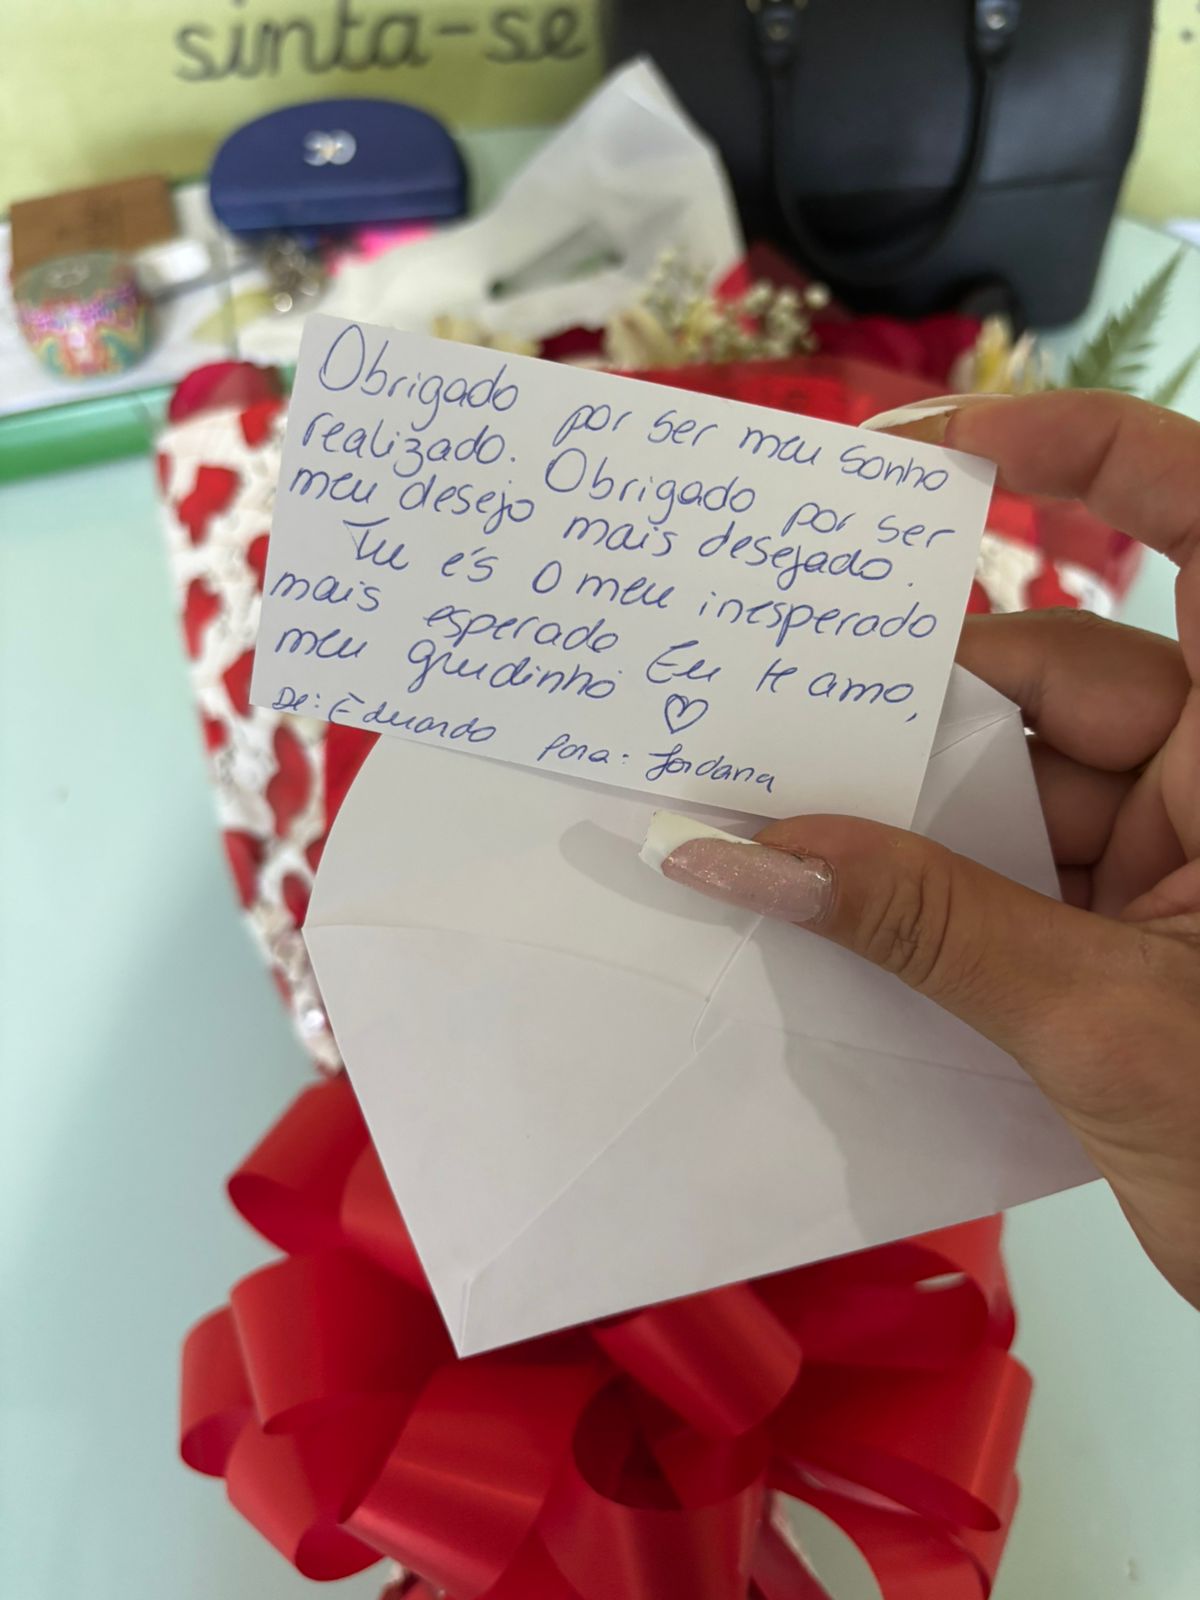 sinta-se
Obrigado por ser meu sonho
realizado. Obrigado por ser
meu desejo mais desejado.
Tu és o meu inesperado
mais esperado Eu te amo,
meu grudinho ♡
De: Eduardo Para: Jordana